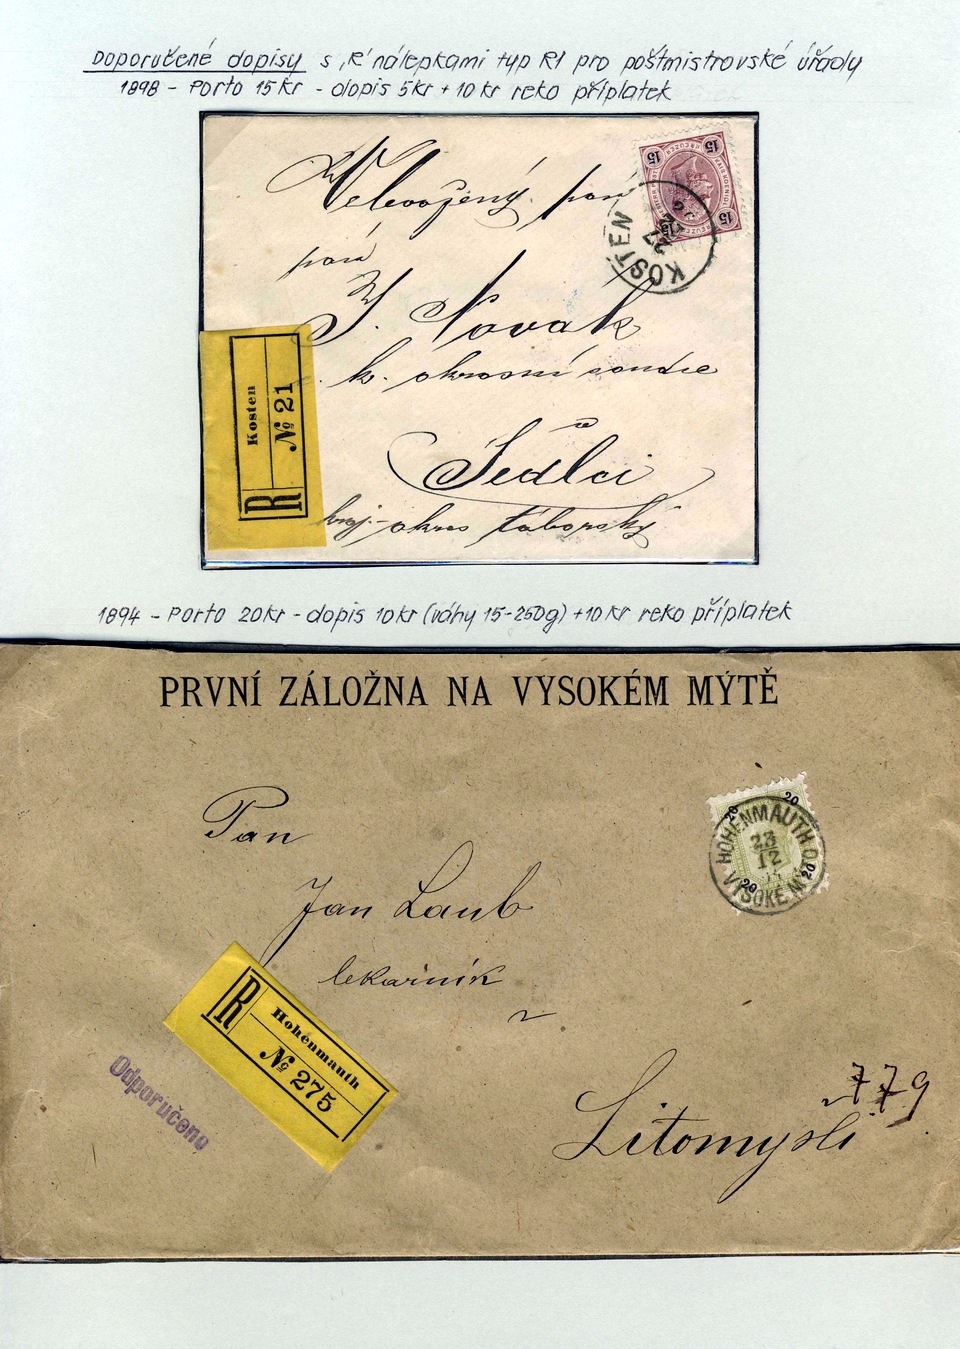 Doporučené dopisy s „R“ nálepkami typ R1 pro poštmistrovské úřady
1898 - Porto 15 kr - dopis 5kr + 10 kr reko příplatek
15
15
15
15
KOSTEN
27
Velevážený pan
pan
J. Novák
k. okresní soudce
Kosten
№ 21
R
v
Sedlci
kraj-okres táborský
1894 - Porto 20 kr - dopis 10 kr (váhy 15-250g) + 10 kr reko příplatek
PRVNÍ ZÁLOŽNA NA VYSOKÉM MÝTĚ
20
20
20
20
HOHENMAUTH
23
12
VYSOKÉ MÝTO
Pan
Jan Laub
lekárník
v
R
Hohenmauth
№ 275
Odporučeno
779
Litomyšli